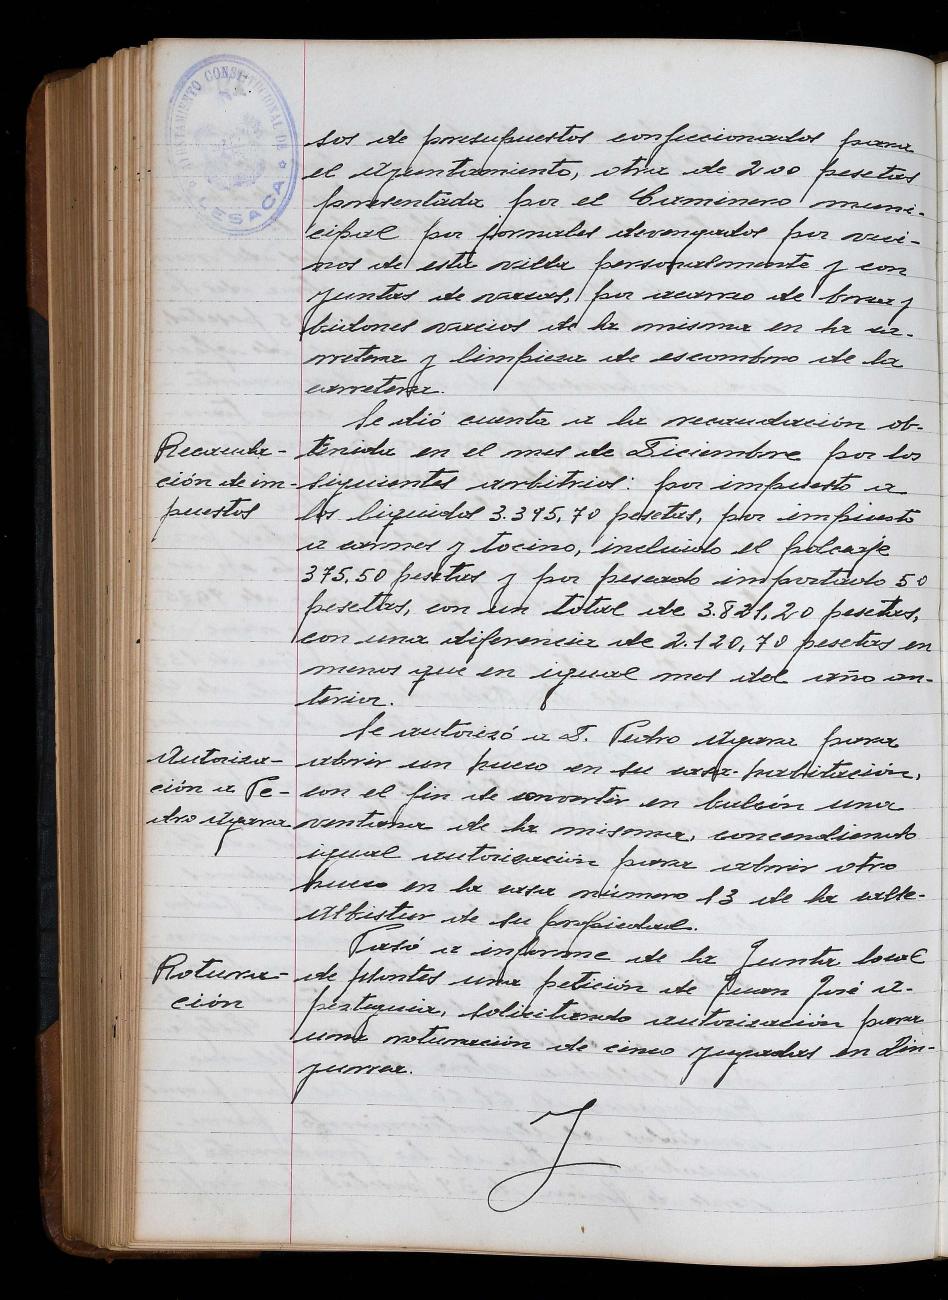 AYUNTAMIENTO CONSTITUCIONAL DE
LESACA
sos de presupuestos confeccionados para
el Ayuntamiento, otra de 200 pesetas
presentada por el Caminero muni-
cipal por jornales devengados por veci-
nos de esta villa personalmente y con
yuntas de vacas, por acarreo de brea y
bidones vacios de la misma en la ca-
rretera y limpieza de escombro de la
carretera.
Se dió cuenta a la recaudación ob-
Recauda-
ción de im-
puestos
tenida en el mes de Diciembre por los
siguientes arbitrios: por impuesto a
los liquidos 3.395,70 pesetas, por impuesto
a carnes y tocino, incluido el polcaje
375,50 pesetas y por pescado importado 50
pesetas, con un total de 3.821,20 pesetas,
con una diferencia de 2.120,70 pesetas en
menos que en igual mes del año an-
terior.
Se autorizó a D. Pedro Agara para
Autoriza-
ción a Pe-
dro Agara
abrir un hueco en su casa-habitación,
con el fin de convertir en balcón una
ventana de la misma, concendiendo
igual autorización para abrir otro
hueco en la casa número 13 de la calle-
Albistur de su propiedad.
Pasó a informe de la Junta local
Rotura-
ción
de Montes una petición de Juan José A-
pesteguia, solicitando autorización para
una roturación de cinco yugadas en Din-
jurrea.